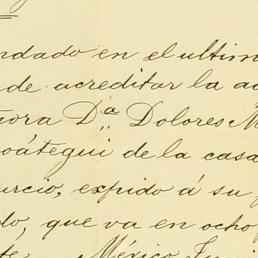 ndado en el ultim
de acreditar la a
ora Dª Dolores M
oátegui de la casa
urcio, expido á su
do, que va en ocho
México, Juni